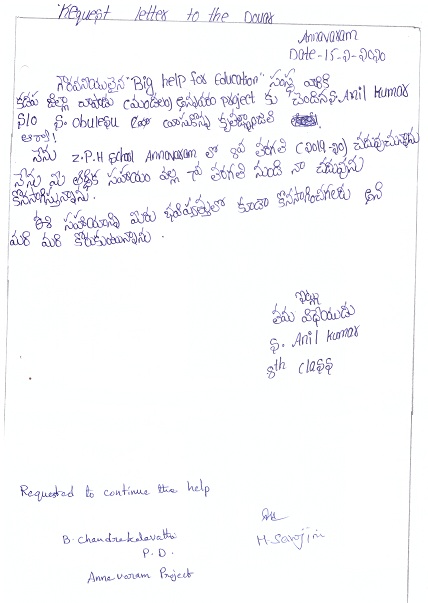 Request letter to the Donar
Annavaram
Date-15-2-2020
గౌరవనీయులైన "Big help for Education" సంస్థ వారికి
కడప జిల్లా (మండలం) project కు చెందిన S. Anil Kumar
S/o S. obulesu
నేను Z.P.H School Annavaram లో 8వ తరగతి (2019-20) చదువుచున్నాను
నేను మీ ఆర్థిక సహాయం వల్ల 7వ తరగతి నుండి నా చదువును
కొనసాగిస్తున్నాను.
ఈ సహాయాన్ని మీరు భవిష్యత్తులో కూడా కొనసాగించగలరు అని
మరీ మరీ కోరుకుంటున్నాను.
ఇట్లు
తమ విధేయుడు
S. Anil Kumar
8th Class
Requested to continue the help
B. Chandrakalavathi
P.D.
Annavaram Project
H Sarojini